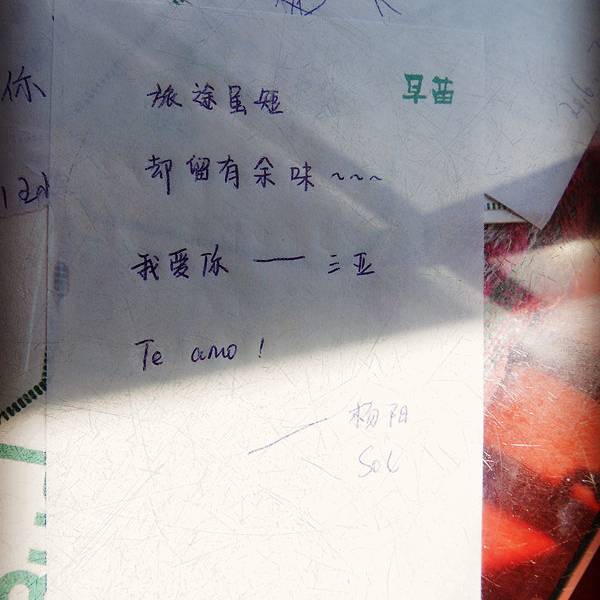 你
早苗
旅途虽短
却留有余味~~~
我爱你 —— 三亚
Te amo!
—— 杨阳
Sol